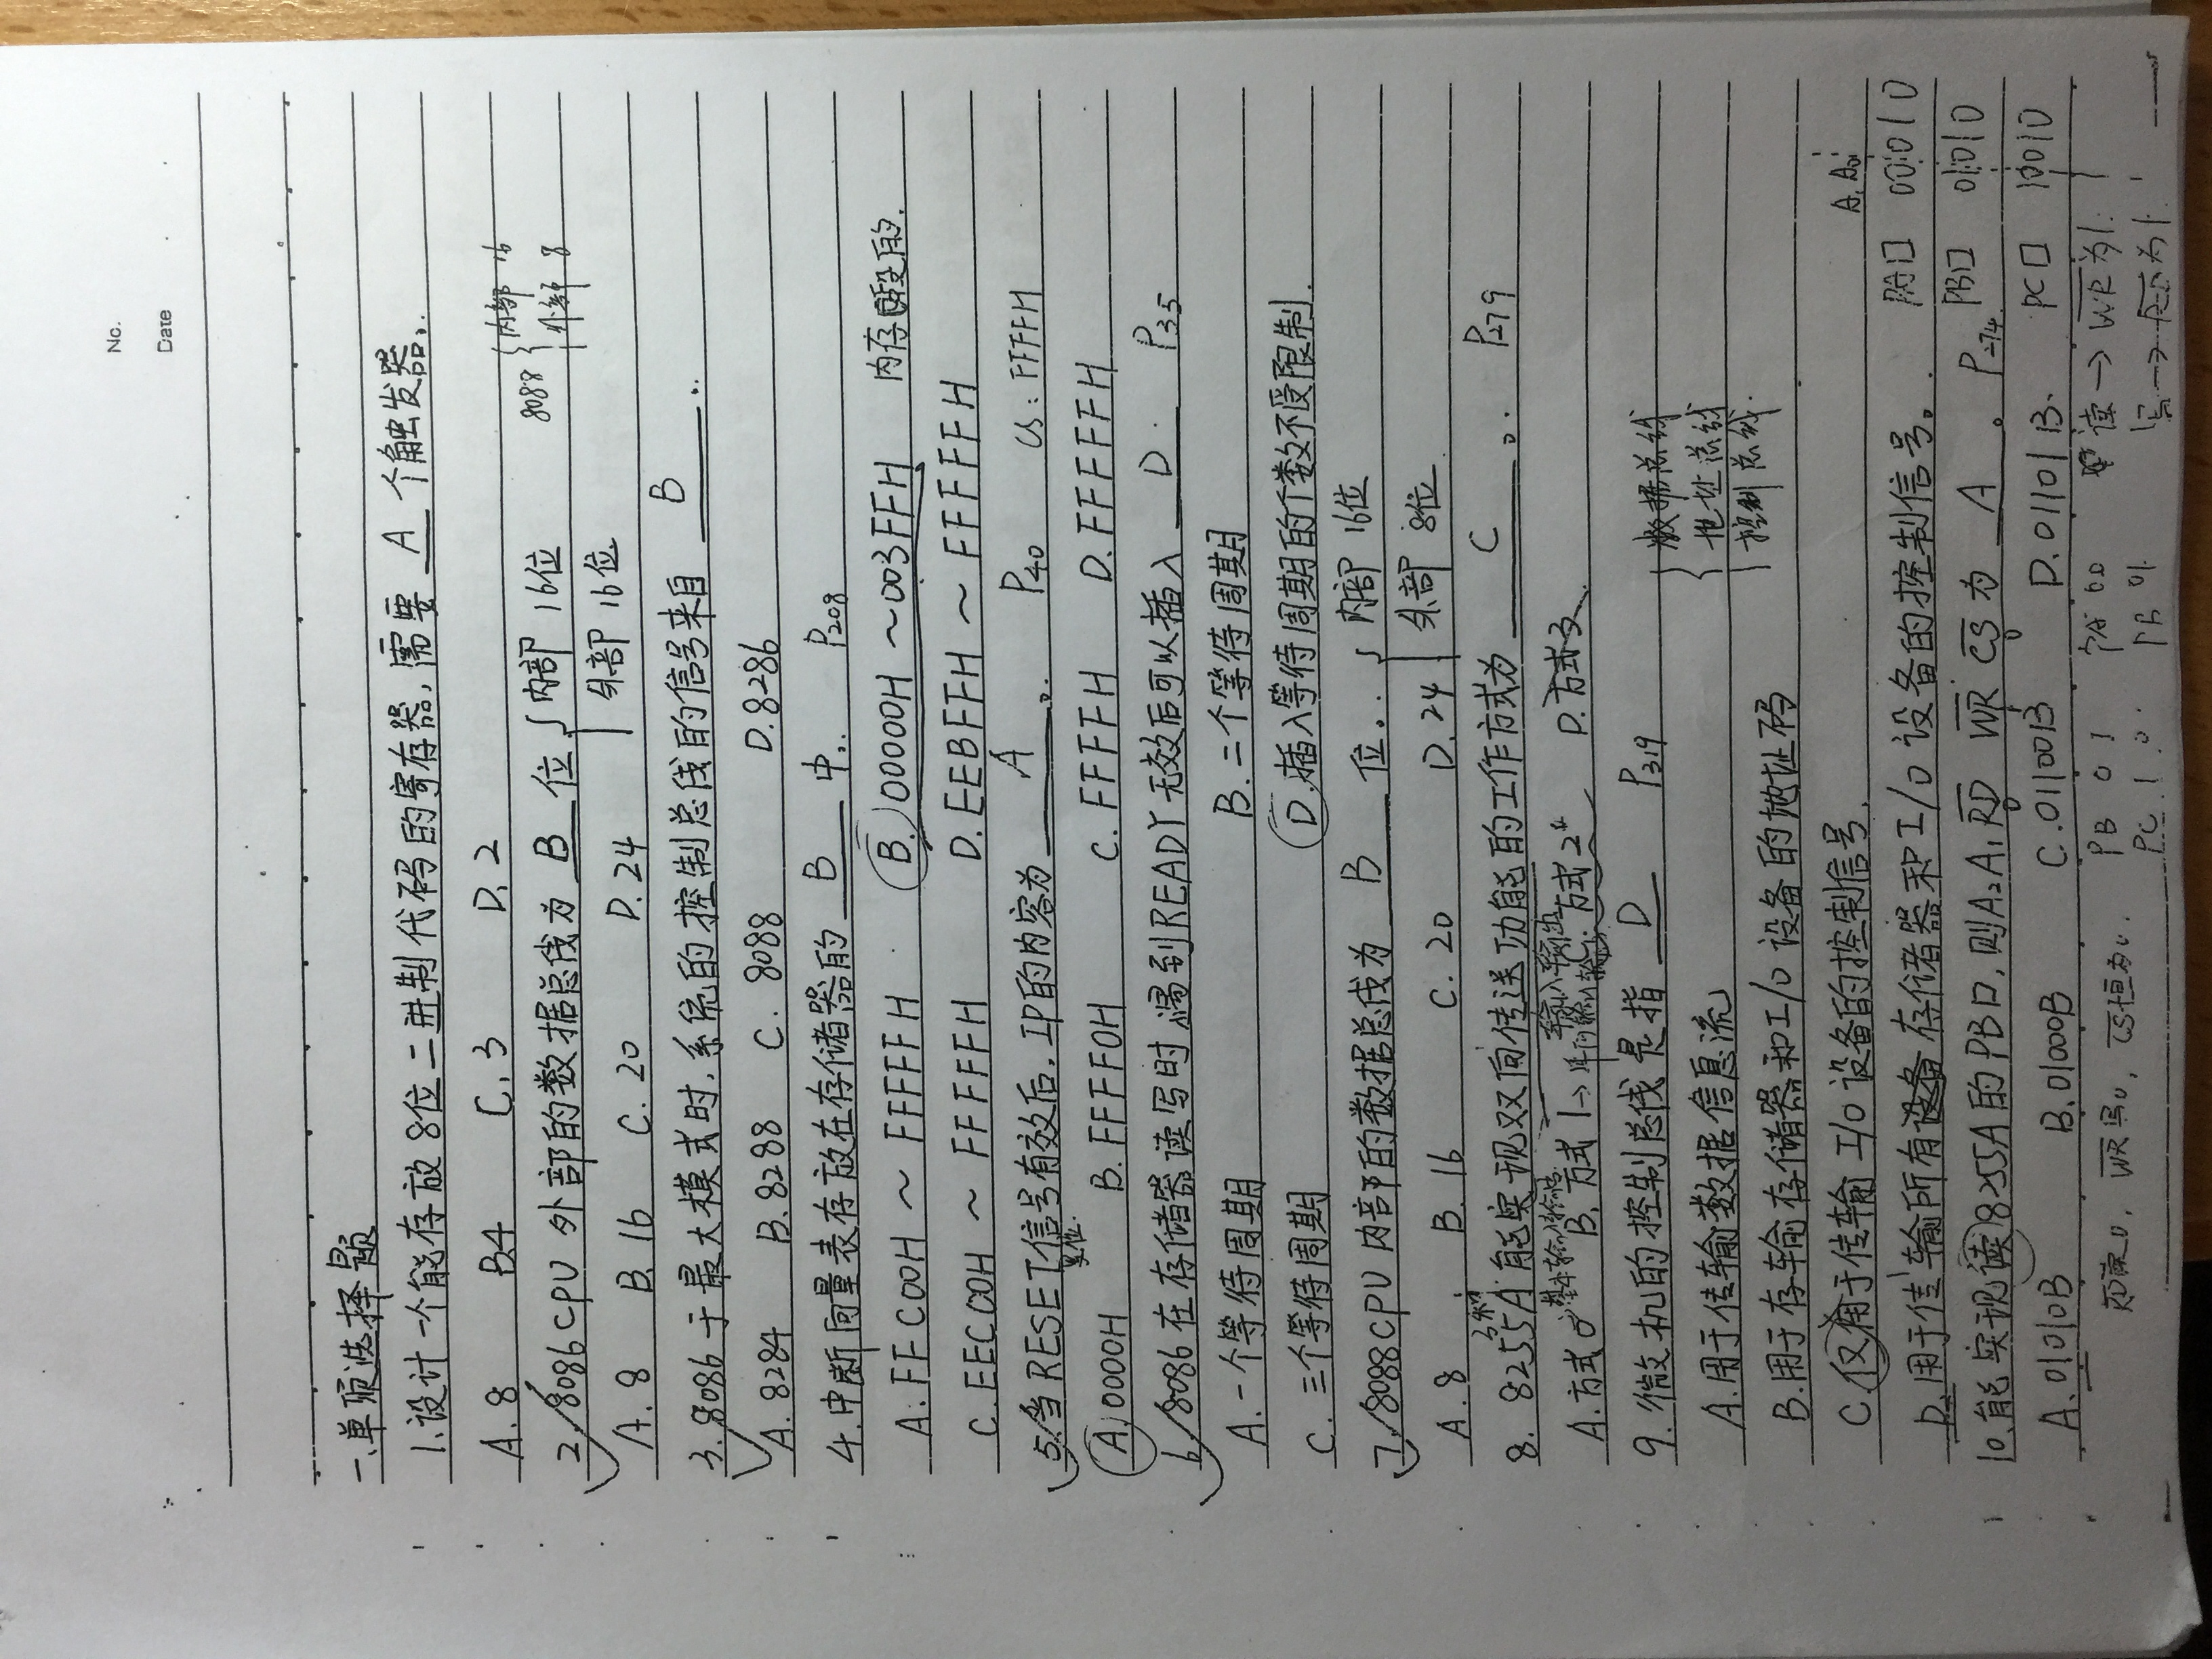 No.
Date
一.单项选择题
1.设计一个能存放8位二进制代码的寄存器,需要 A 个触发器.
A.8 B.4 C.3 D.2
2.8086CPU 外部的数据总线为 B 位 { 内部 16位 8088 { 内部 16
外部 16位 外部 8
A.8 B.16 C.20 D.24
3.8086于最大模式时,系统的控制总线的信号来自 B .
A.8284 B.8288 C.8088 D.8286
4.中断向量表存放在存储器的 B 中. P208
A.FFC00H ~ FFFFFH B.00000H ~003FFH 内存段的.
C.EEC00H ~ FFFFFH D.EEBFFH ~ FFFFFH
5.当RESET信号有效后,IP的内容为 A 。 P40 CS:FFFFH
复位.
A.0000H B.FFFF0H C.FFFFH D.FFFFFH
6.8086在存储器读写时遇到READY无效后可以插入 D . P35
A.一个等待周期 B.二个等待周期
C.三个等待周期 D.插入等待周期的个数不受限制.
7.8088CPU 内部的数据总线为 B 位. { 内部 16位
外部 8位
A.8 B.16 C.20 D.24
3种
8. 8255A能实现双向传送功能的工作方式为 C 。 P279
A.方式0→基本输入输出 B.方式1→ C.方式2 D.方式3
9.微机的控制总线是指 D P319
{ 数据总线
地址总线
控制总线.
A.用于传输数据信息流
B.用于存输存储器和I/O设备的地址码
C.仅用于传输I/O设备的控制信号.
A1 A0
D.用于传输所有设备存储器和I/O设备的控制信号。 PA口 00010
10.能实现读8255A的PB口,则A2A1 RD WR CS为 A 。 P274 PB口 01010
0 1 0
A.01010B B.01000B C.01100B D.01101B. PC口 10010
RD读0, WR写0, CS恒为0. PB 0 1 PA 00 读→WR为1.
PC 1 0 PB 01 写→RD为1.